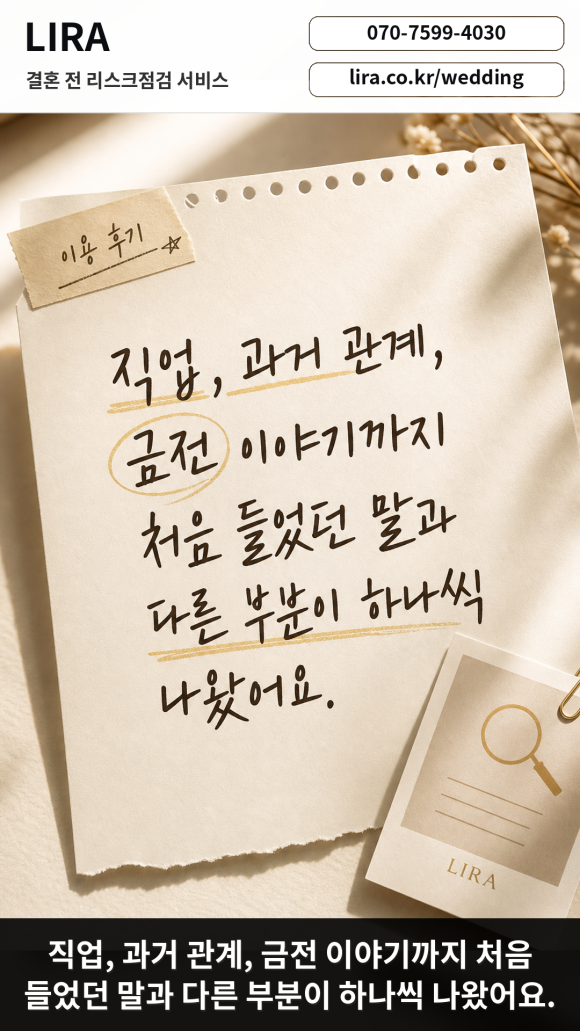 LIRA
결혼 전 리스크점검 서비스
070-7599-4030
lira.co.kr/wedding
이용 후기
직업, 과거 관계,
금전 이야기까지
처음 들었던 말과
다른 부분이 하나씩
나왔어요.
LIRA
직업, 과거 관계, 금전 이야기까지 처음
들었던 말과 다른 부분이 하나씩 나왔어요.